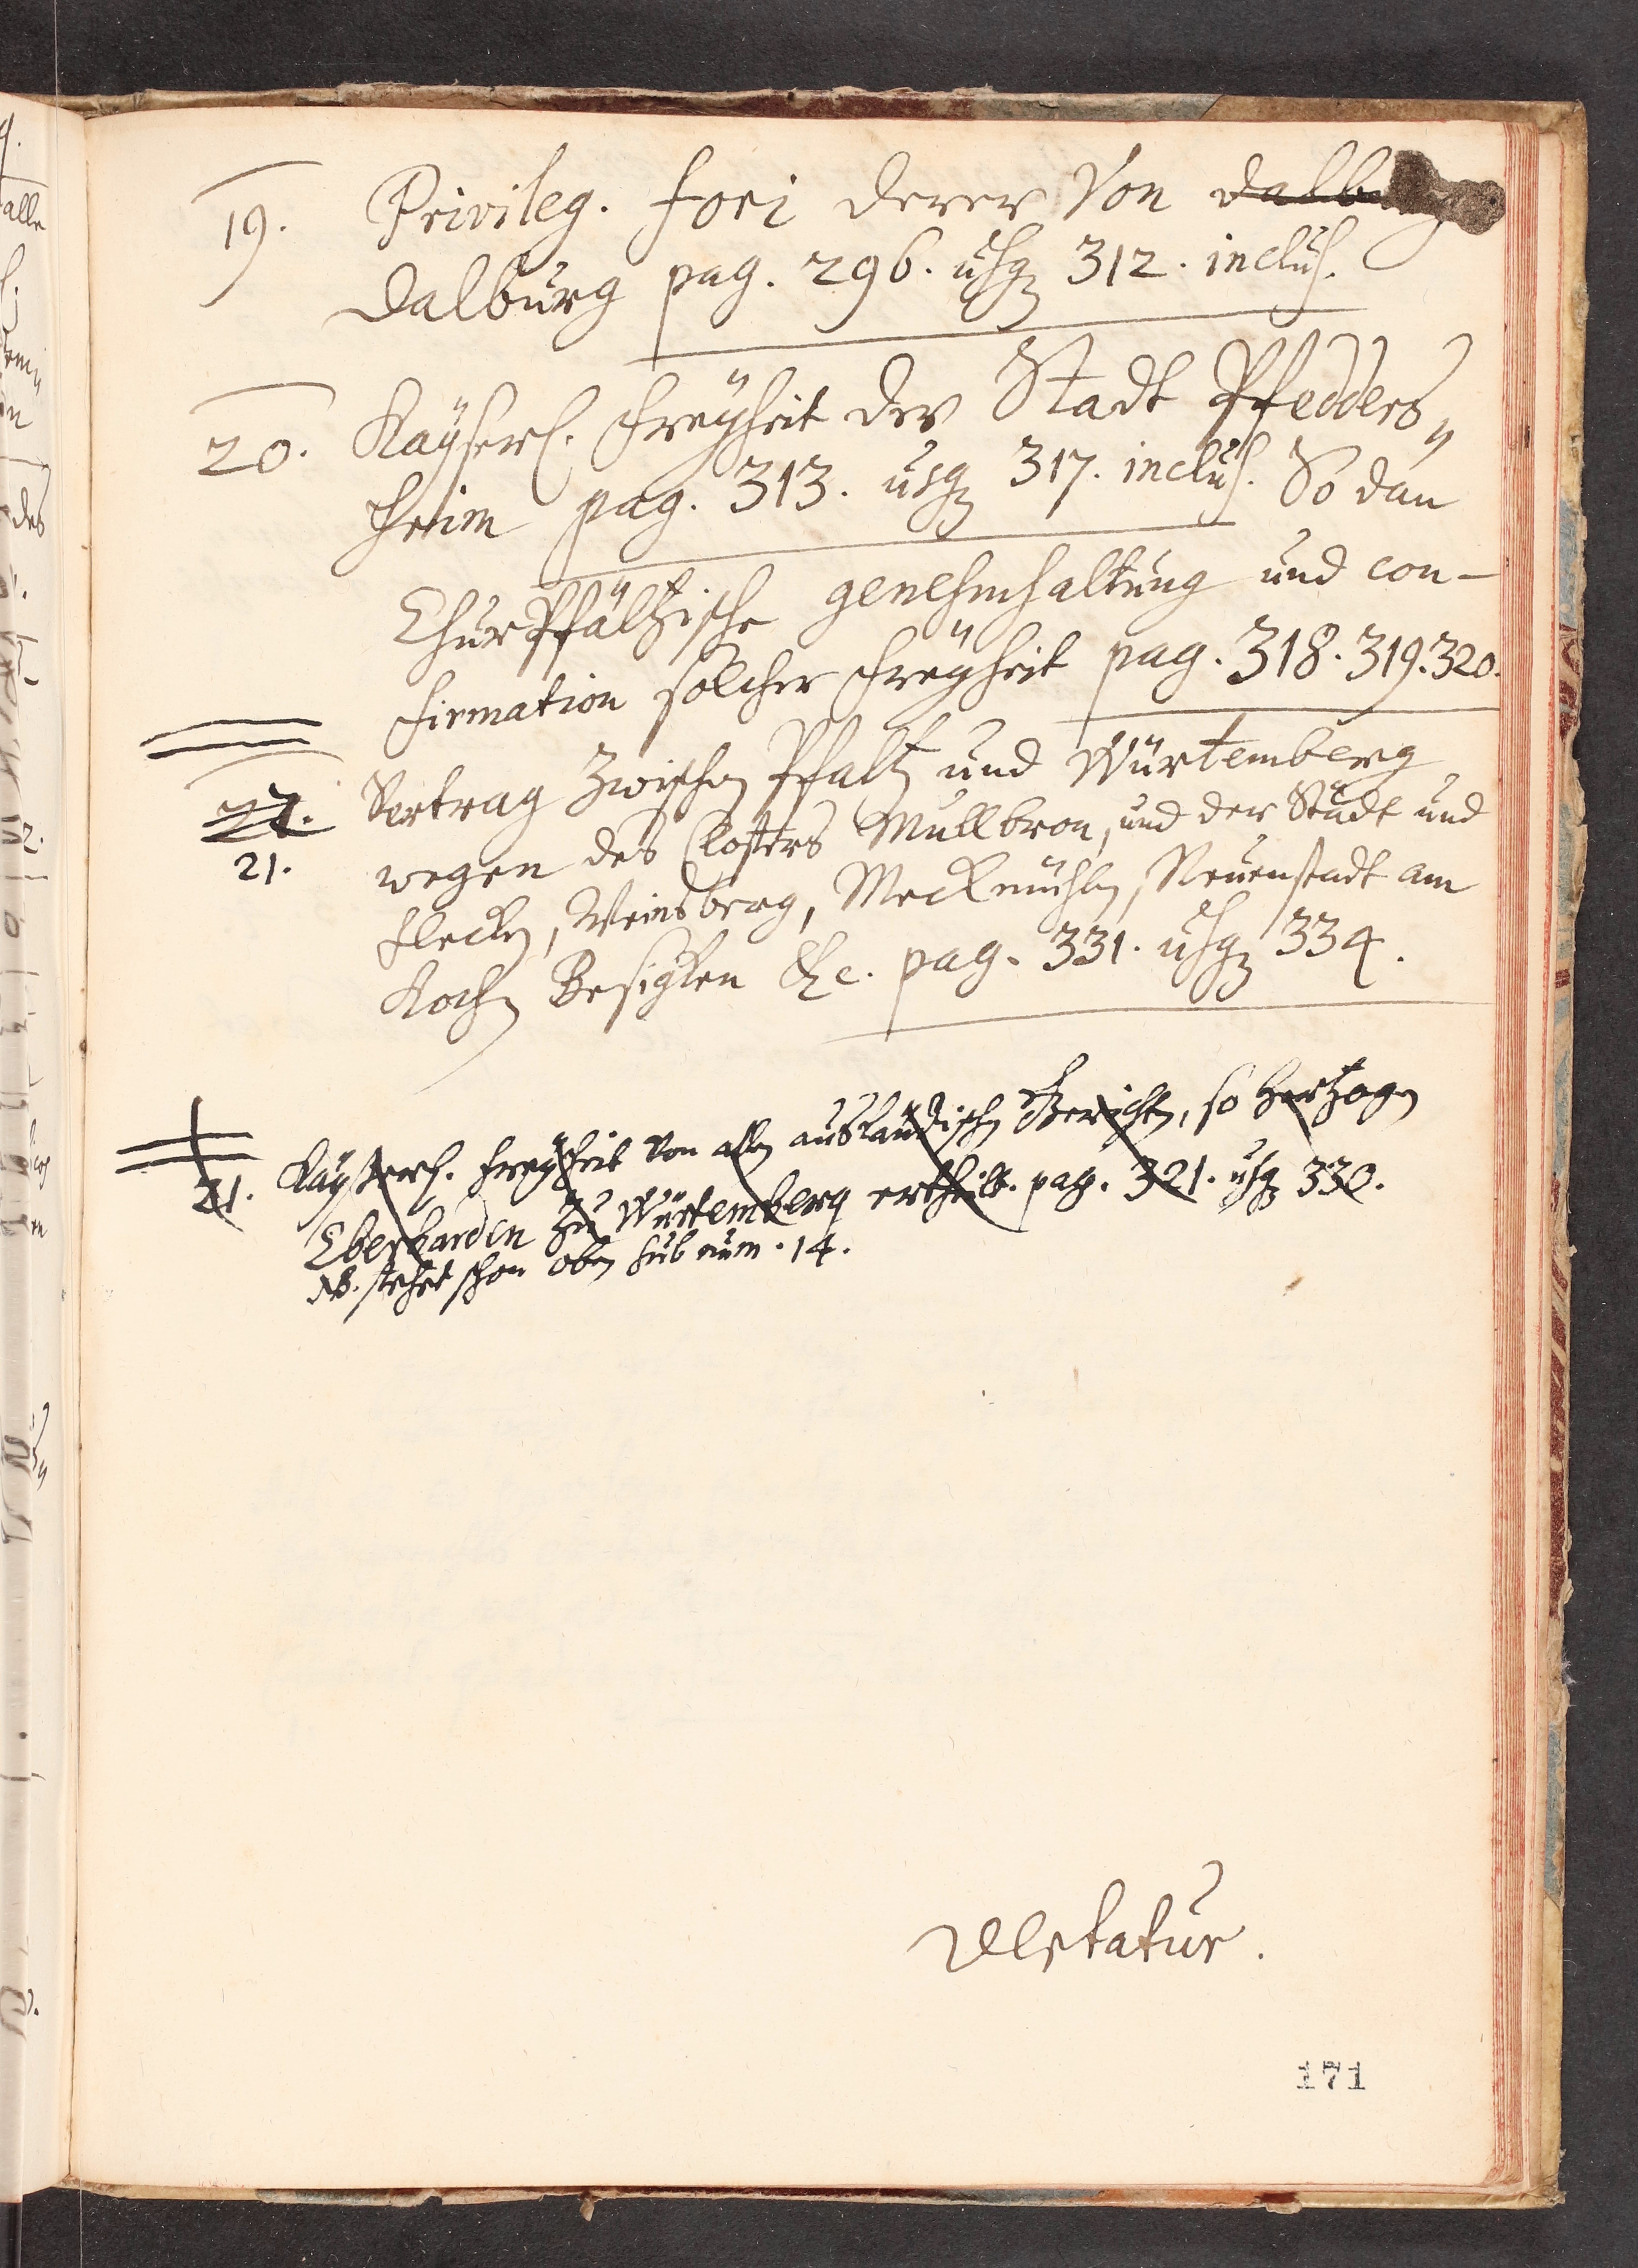 19. Privileg. fori derer Von Dalburg
Dalburg pag. 296. usq 312. inclus.
20. Kayserl. Freyheit der Stadt Pfedders„
heim pag. 313. usq 317. inclus. So dan
ChurPfältzische genehmhaltung und con-
firmation solcher Freyheit pag. 318. 319. 320.
22. Vertrag Zwischen Pfaltz und Würtemberg
21. wegen des Closters Mullbron, und der Städt und
flecken, Weinsberg, Meckmühlen, Neuenstadt am
Kochen Besigken &c. pag. 331. usq 334.
21. Kayserl. Freyheit von allen ausländischen Gerichten, so Hertzogen
Eberharden Zu Würtemberg ertheilt. pag. 321. usq 330.
NB. stehet schon oben sub num. 14.
171